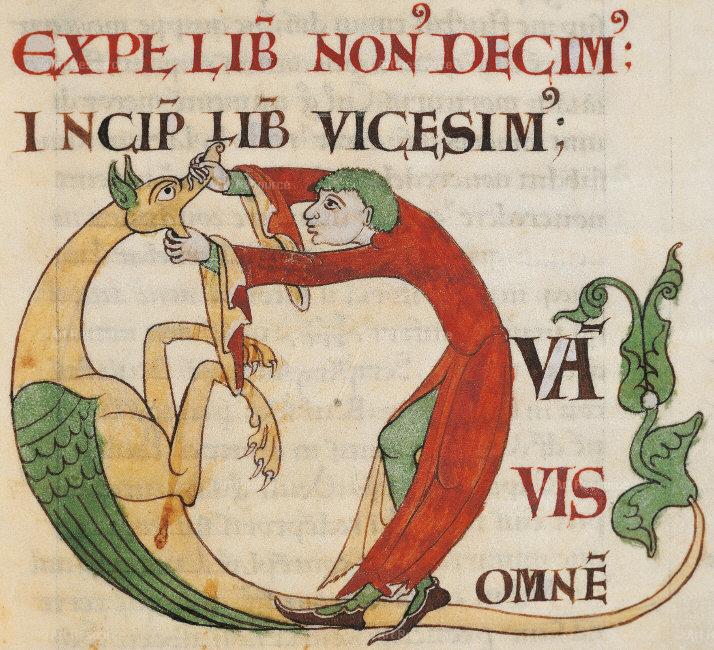 EXPŁ LIB̄ NONꝰ DECIMꝰ;
INCIP̄ LIB̄ VICESIMꝰ;
QVĀ
VIS
OMNĒ